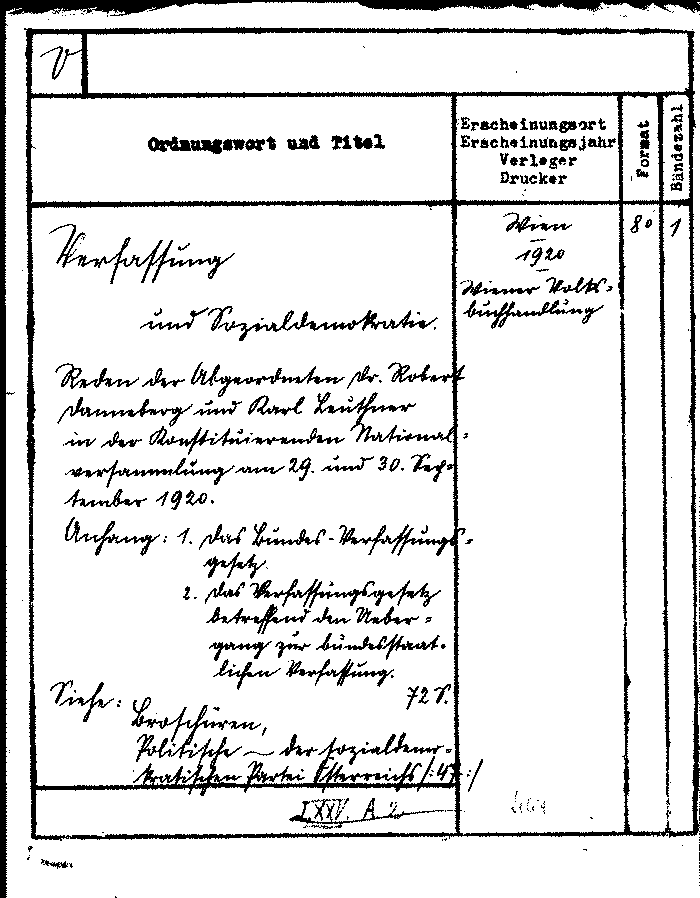 V
Ordnungswort und Titel
Erscheinungsort
Erscheinungsjahr
Verleger
Drucker
Format
Bändezahl
Verfassung
und Sozialdemokratie.
Reden der Abgeordneten Dr. Robert
Danneberg und Karl Leuthner
in der Konstituierenden National-
versammlung am 29. und 30. Sep-
tember 1920.
Anhang: 1. Das Bundes-Verfassungs-
gesetz.
2. Das Verfassungsgesetz
betreffend den Ueber-
gang zur bundesstaat-
lichen Verfassung.
72 S.
Siehe:
Broschüren,
Politische — der sozialdemo-
kratischen Partei Österreichs /:47:/
Wien
1920
Wiener Volks-
buchhandlung
8°
1
LXXV. A 2